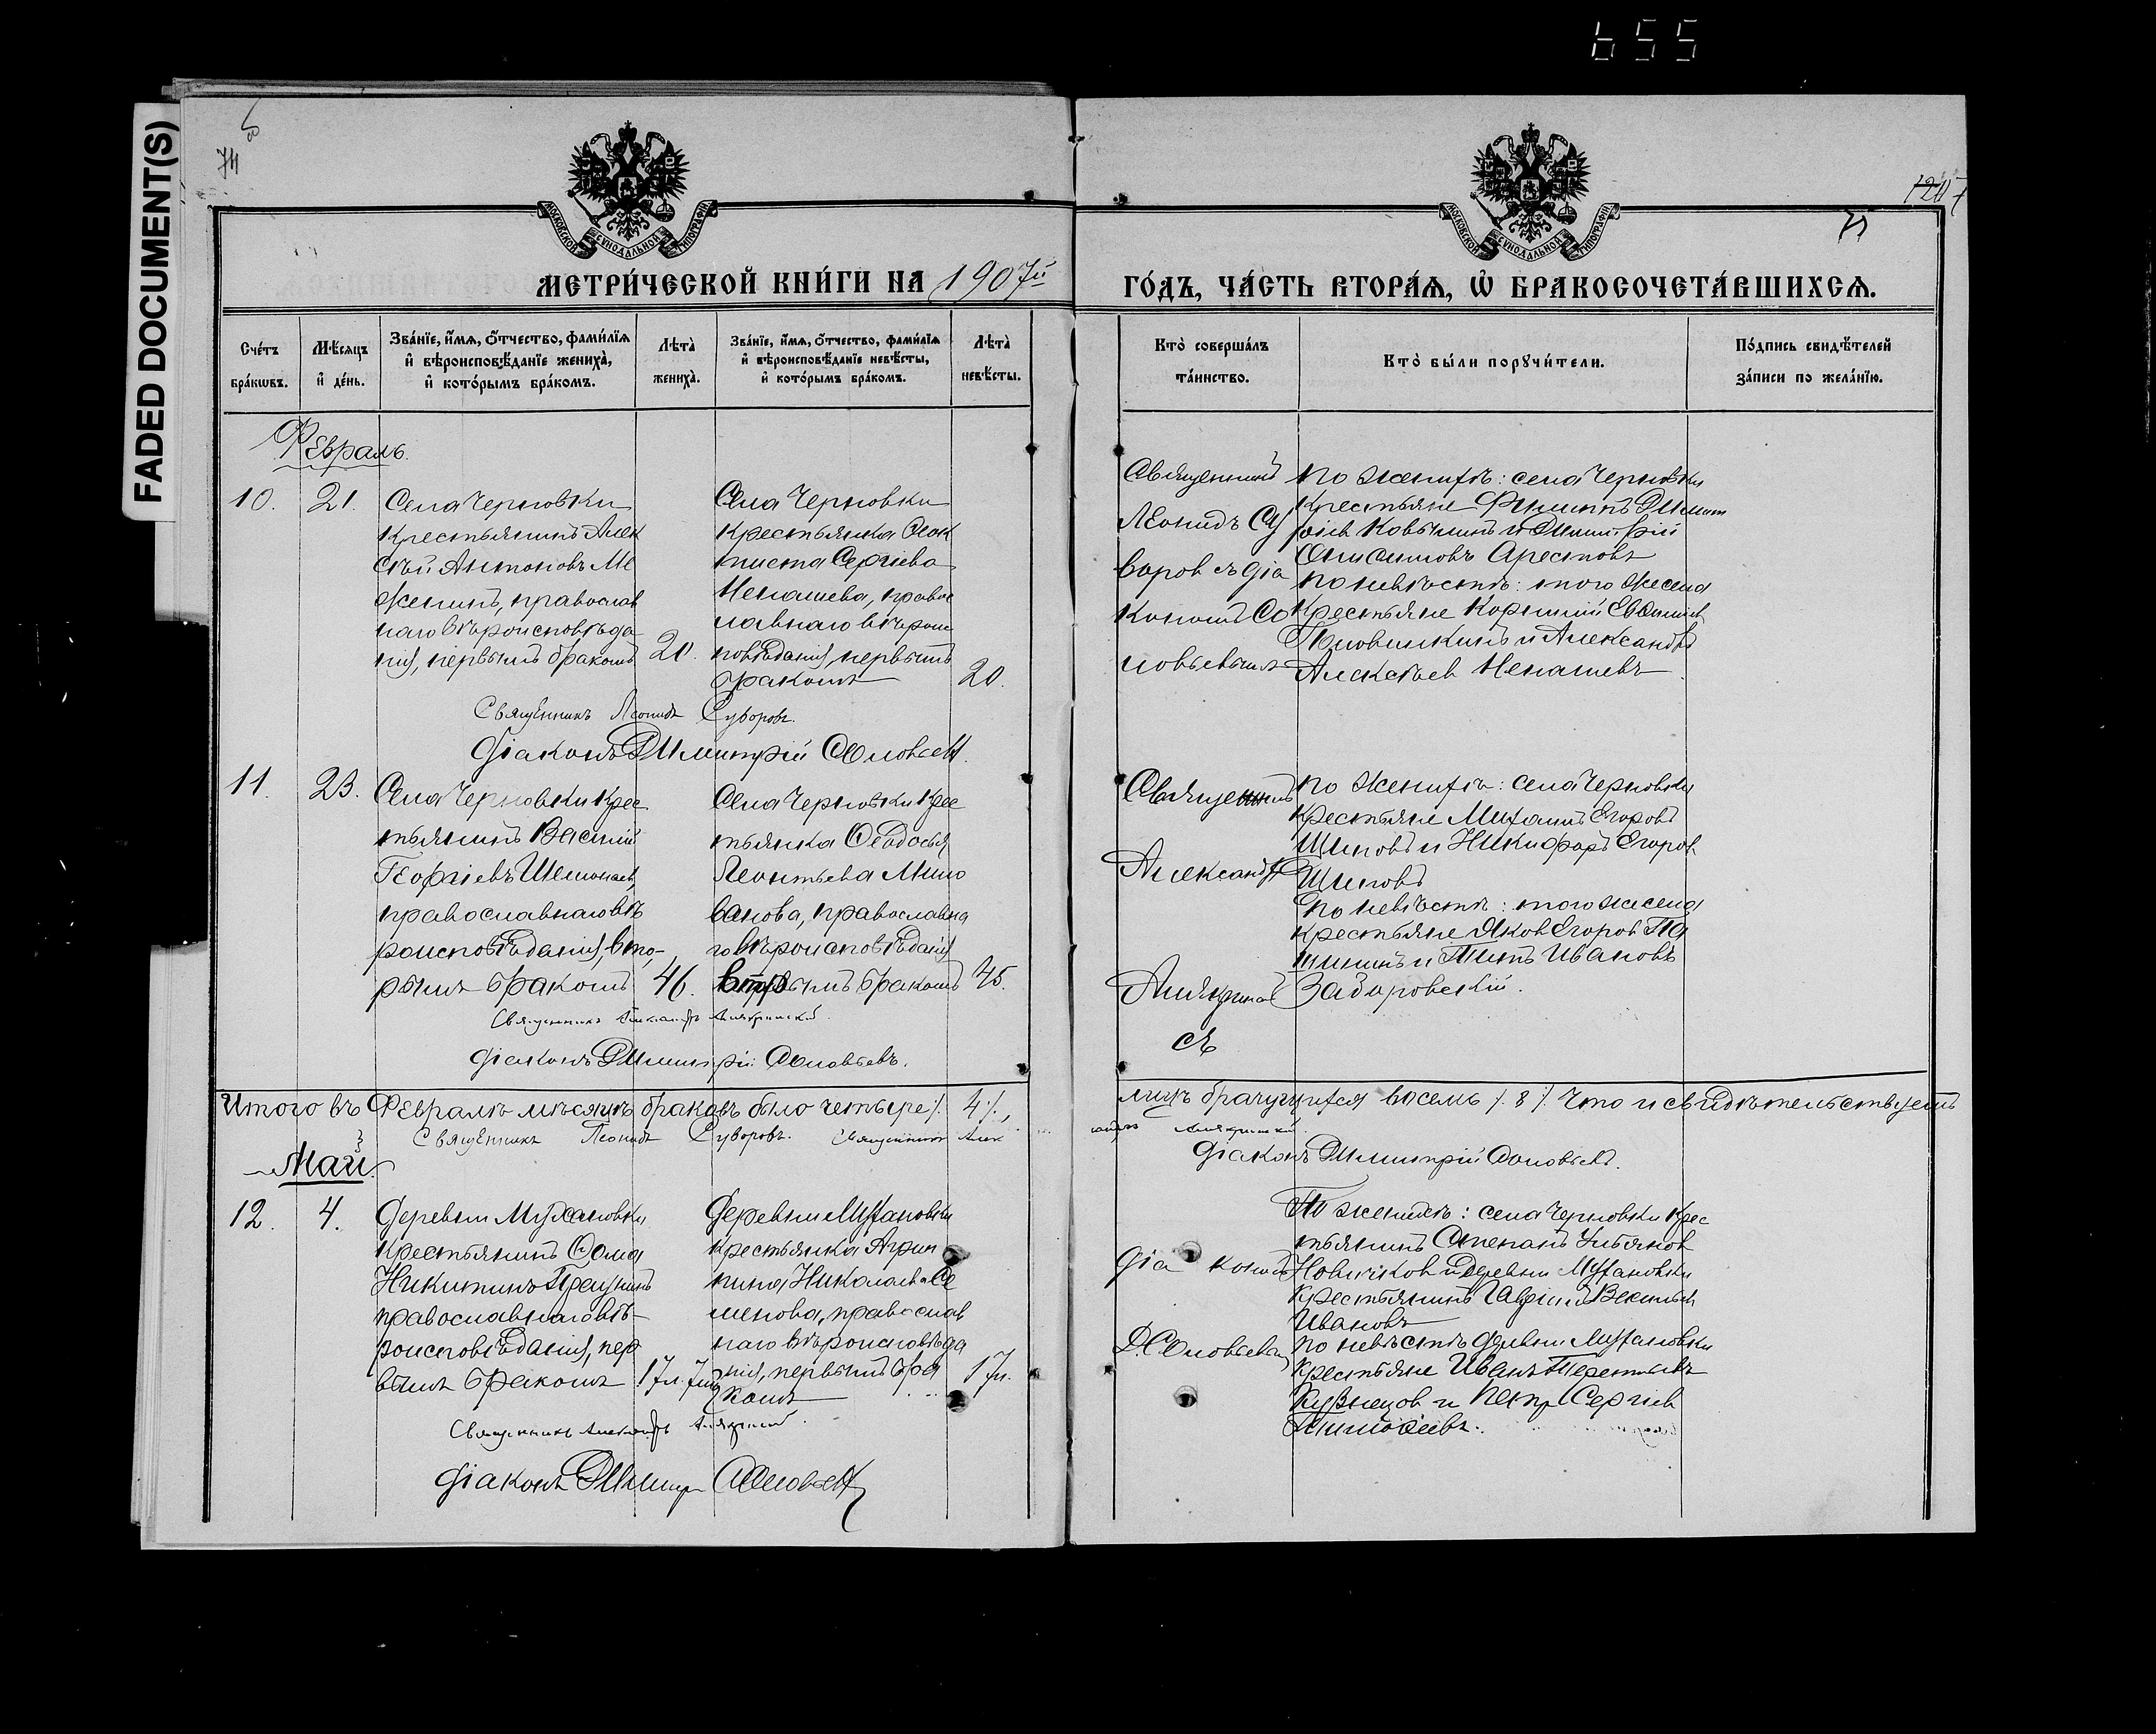 655
FADED DOCUMENT(S)
74
75
МОСКОВСКОЙ СѴНОДАЛЬНОЙ ТИПОГРАФІИ
МОСКОВСКОЙ СѴНОДАЛЬНОЙ ТИПОГРАФІИ
МЕТРИ́ЧЕСКОЙ КНИ́ГИ НА 1907й
ГО́ДЪ, ЧА́СТЬ ВТОРА́Ѧ, Ѡ҆ БРАКОСОЧЕТА́ВШИХСѦ.
Сче́тъ бра́кѡвъ.
Мѣ́сяцъ и҆ де́нь.
Зва́нїе, и҆́мѧ, ѻ҆́тчество, фами́лїѧ
и҆ вѣроисповѣ́данїе жениха̀,
и҆ кото́рымъ бра́комъ.
Лѣта̀ жениха̀.
Зва́нїе, и҆́мѧ, ѻ҆́тчество, фами́лїѧ
и҆ вѣроисповѣ́данїе невѣ́сты,
и҆ кото́рымъ бра́комъ.
Лѣта̀ невѣ́сты.
Кто̀ соверша́лъ та́инство.
Кто̀ бы́ли порꙋчи́тели.
По́дпись свидѣ́телей за́писи по жела́нїю.
Февраль.
10.
21.
Села Черновки
крестьянинъ Алек
сѣй Антоновъ Ме
женинъ, православ
наго вѣроисповѣда
нія, первымъ бракомъ
Села Черновки
крестьянка
Сергіева
Ненашева, правос
лавнаго вѣроис
повѣданія, первымъ
бракомъ
20.
Священникъ
Леонидъ Су
воров съ діа
кономъ Со
ловьевымъ
По женихѣ: села Черновки
крестьяне Филиппъ Димит
ріев и Димитрій
Онисимовъ Арестовъ
по невѣстѣ: того же села
крестьяне Корнилій
и Александръ
Алексѣев Ненашевъ
Священникъ Леонидъ Суворовъ.
Діаконъ Димитрій Соловьевъ.
11.
23.
Села Черновки крес
тьянинъ Василій
Георгіевъ Шелонаев,
православнаго вѣ
роисповѣданія, вто-
рымъ бракомъ
46.
Села Черновки крес
тьянка Ѳеодосья
Леонтьева Мило
ванова, православна
го вѣроисповѣданія
вторымъ бракомъ
45.
Священникъ
Александръ
съ
По женихѣ: села Черновки
крестьяне Михаилъ Егоровъ
Щиповъ и Никифоръ Егоров
Щиповъ
по невѣстѣ: того же села
крестьяне Яков Егоров Па
шининъ и Титъ Ивановъ
Заборовскій.
Священникъ Александръ
Діаконъ Димитрій Соловьевъ.
Итого въ Февралѣ мѣсяцѣ браковъ было четыре /. 4 /.,
лицъ брачущихся восемь /. 8 /. Что и свидѣтельствуетъ
Священникъ Леонидъ Суворовъ. Священникъ Алек
Діаконъ Димитрій Соловьевъ.
Май.
12.
4.
Деревни Мухановки
крестьянинъ Ѳома
Никитинъ
православнаго вѣ-
роисповѣданія, пер
вымъ бракомъ
Деревни Мухановки
крестьянка Агрип
пина Николаева Се
менова, православ
наго вѣроисповѣда
нія, первымъ бра
комъ
17 л.
Діа кономъ
Д. Соловьевым
По женихѣ: села Черновки крес
тьянинъ Степанъ Ульянов
Новичков и деревни Мухановки
крестьянинъ
Ивановъ
по невѣстѣ деревни Мухановки
крестьяне Иванъ Терентьевъ
Кузнецов и Петр Сергіев
Тимоѳеевъ.
Священникъ Александръ
Діаконъ Димитр Соловьевъ